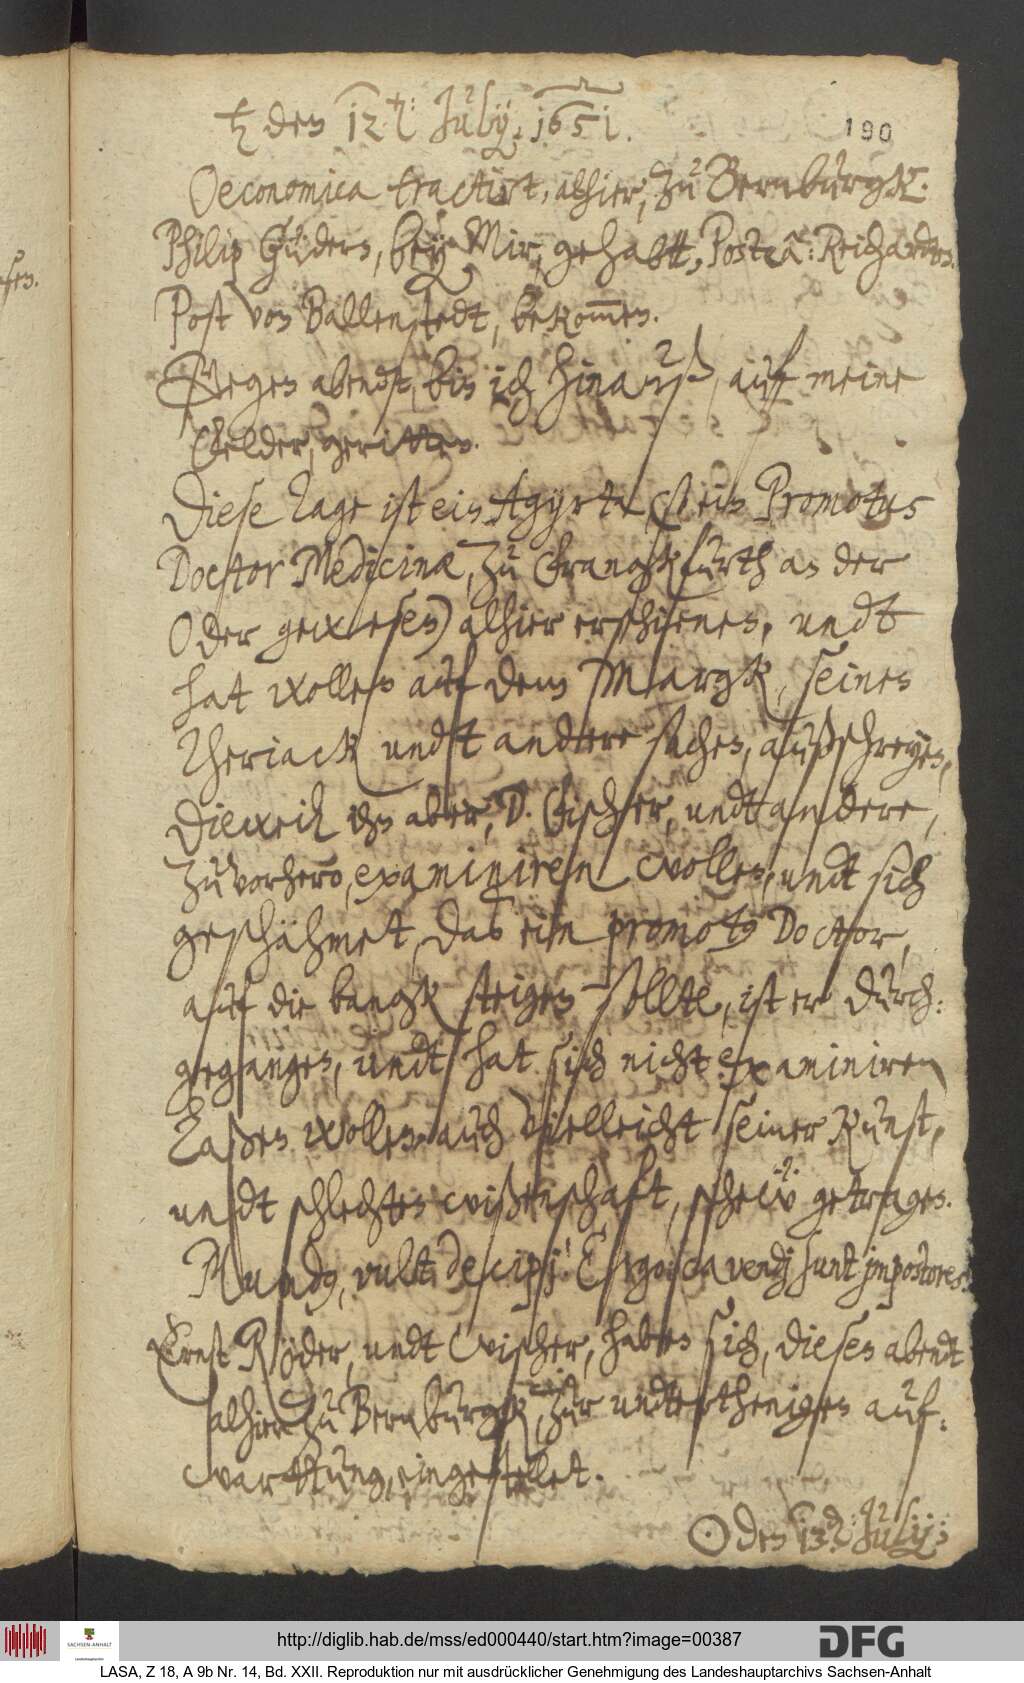 ♄ den 12. t: Julÿ, 1651.
190
Oeconomica tractirt, alhier, zu Bernburgk.
Philip Güders, beÿ Mir, gehabtt, Posteà: Reichardts.
Post von Ballenstedt, bekom̅en.
Gegen abendt, bin ich hinauß, auf meine
Felder, geritten.
Diese Tage ist ein Agÿrta, (ein Promotus
Doctor Medicinæ, zu Frangkfurth an der
Oder gewesen) alhier erschienen, undt
hat wollen auf dem Margk, seinen
Theriack undt andere sachen, außschreyen,
Dieweil ihn aber, D. Fischer, undt andere,
zuvorhero, examiniren wollen, undt sich
geschähmet, das ein promotus Doctor,
auf die bangk steigen sollte, ist er durch-
gegangen, undt hat sich nicht examiniren
Laßen wollen, auch vielleicht seiner Kunst,
undt schlechten wißenschaft, schew getragen.
Mundus, vult decipj! Ergo: cavendj sunt jmpostores.
Ernst Röder, undt Wischer, haben sich, diesen abendt
alhier zu Bernburgk, zur undterthenigen auf-
warttung, eingestellet.
☉ den 13. d: Julÿ;
sen.
http://diglib.hab.de/mss/ed000440/start.htm?image=00387
SACHSEN-ANHALT
DFG
LASA, Z 18, A 9b Nr. 14, Bd. XXII. Reproduktion nur mit ausdrücklicher Genehmigung des Landeshauptarchivs Sachsen-Anhalt